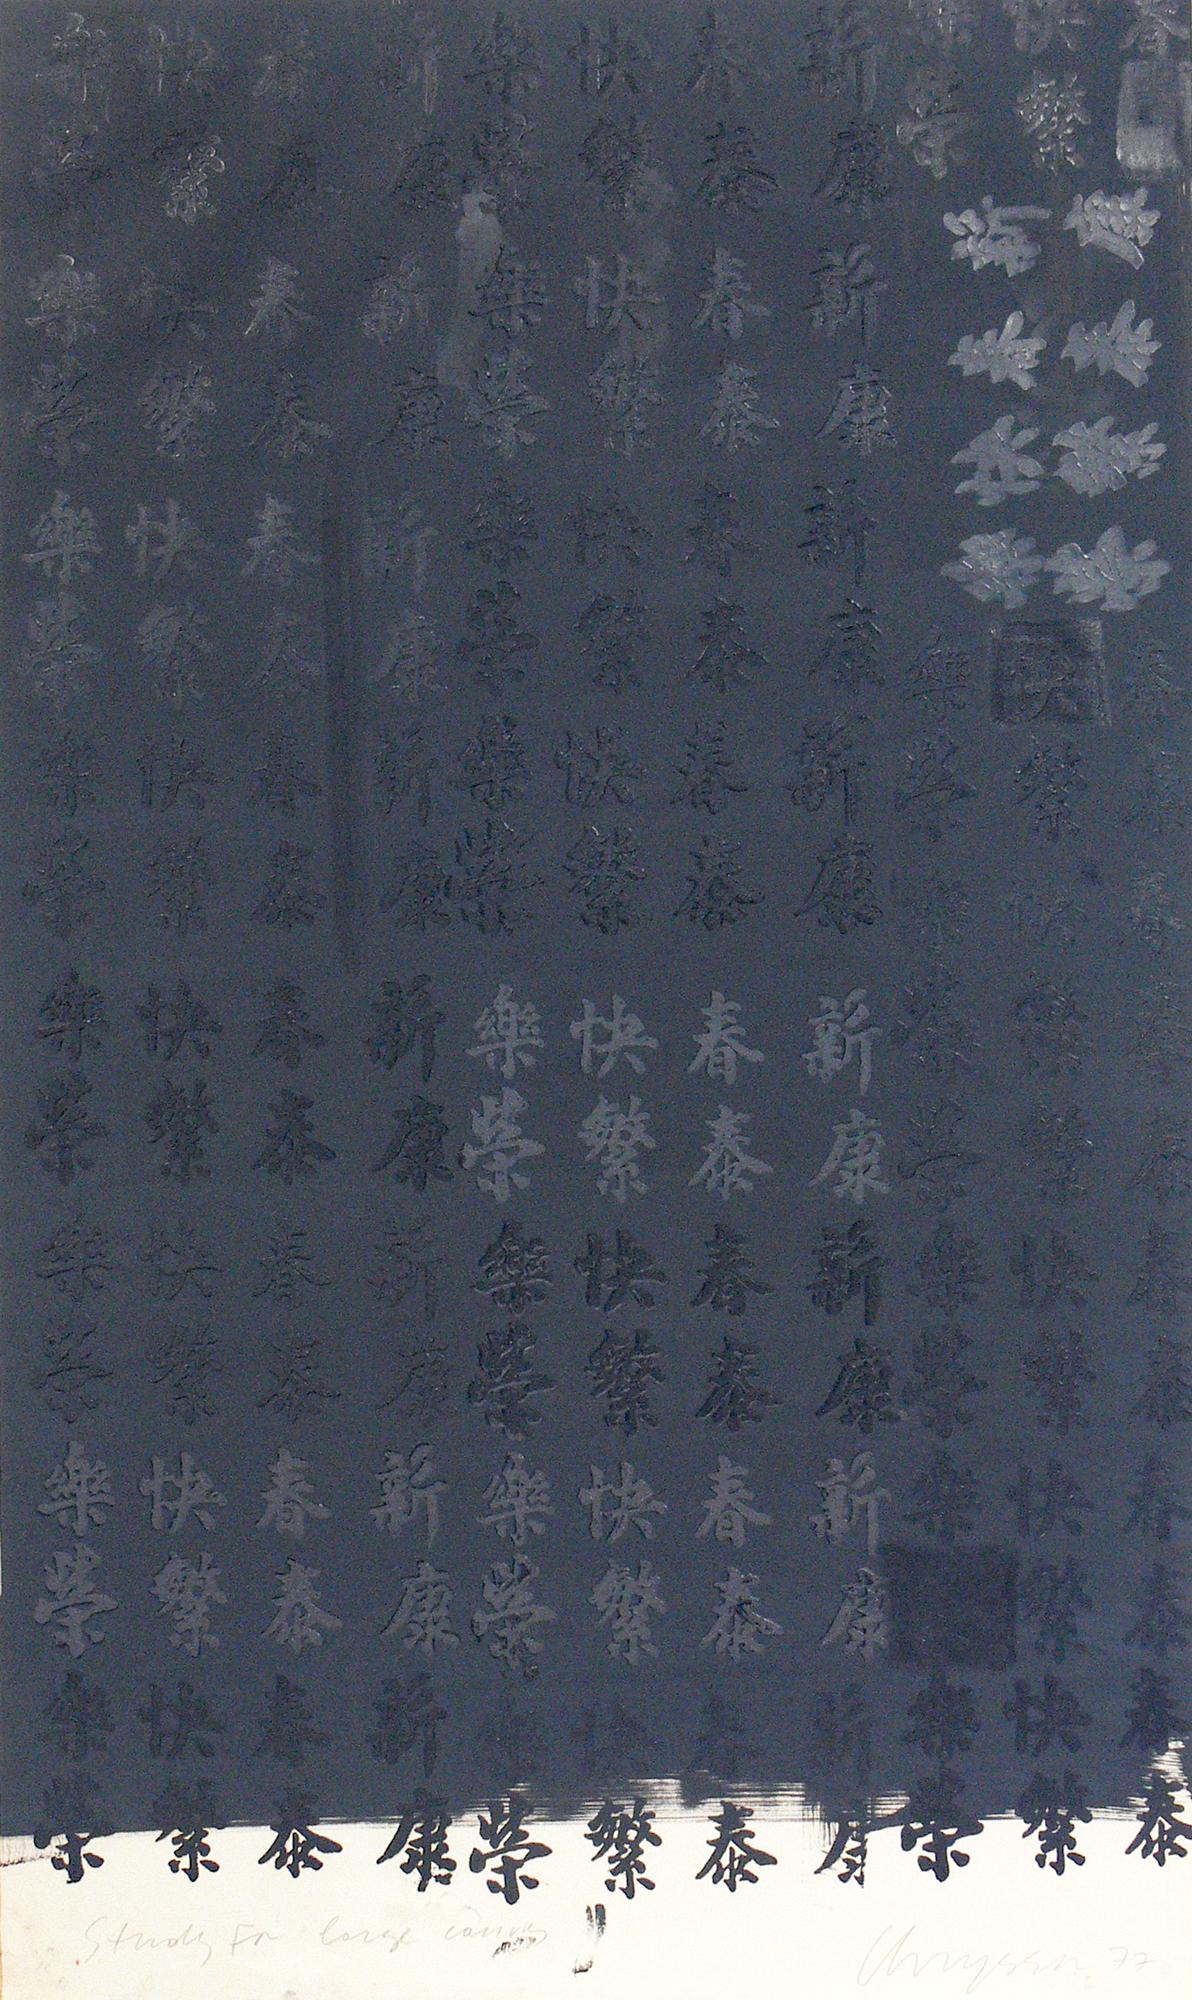 樂 快 春 新 樂 快 春 新 樂 快 春
榮 繁 泰 康 榮 繁 泰 康 榮 繁
樂 快 春 新 樂 快 春 新
榮 繁 泰 康 榮 繁 泰 康
樂 快 春 新 樂 快 春 新
榮 繁 泰 康 榮 繁 泰 康 樂 快 春
樂 快 春 新 樂 快 春 新 榮 繁
榮 繁 泰 康 榮 繁 泰 康 樂 快 春
樂 快 春 新 樂 快 春 新 榮 繁 泰
榮 繁 泰 康 榮 繁 泰 康 榮 繁 泰
樂 快 春 新 樂 快 春 新 樂 快 春
榮 繁 泰 康 榮 繁 泰 康 榮 繁 泰
樂 快 春 新 樂 快 春 新 樂 快 春
榮 繁 泰 康 榮 繁 泰 康 繁 泰
樂 快 春 新 樂 快 春 新 樂 快 春
榮 繁 泰 康 榮 繁 泰 康 榮 繁 泰
Study For large canvas
Chryssa 77